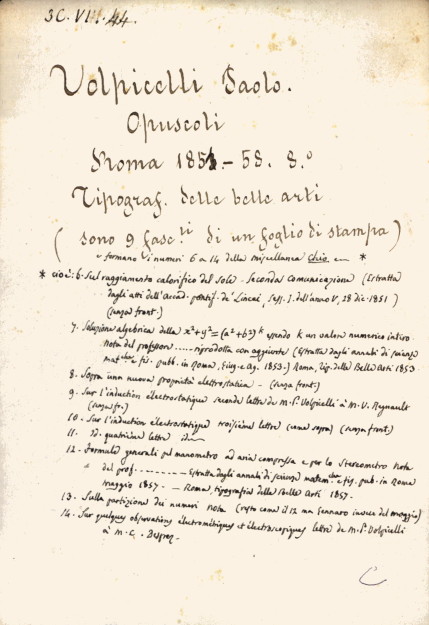 3C. VI . 44.
Volpicelli Paolo.
Opuscoli
Roma 1851.-58. 8.º
Tipograf. delle belle arti
( sono 9 fasc.li di un foglio di stampa )
e formano i numeri 6 a 14 della miscellanea *
* cioè: 6. Sul raggiamento calorifico del Sole - Seconda Comunicazione (Estratta
dagli atti dell'Accad. pontif. de' Lincei, Sess. I. dell'anno V, 28 dic. 1851)
(senza front.)
7. Soluzione algebrica della x²+y²=(a²+b²)ᵏ essendo k un valore numerico intiero
Nota del professor ..... riprodotta con aggiunte (Estratta dagli annali di scienze
mat.che e fis. pubb. in Roma, Lug. e Ag. 1853.) Roma, Tip. delle Belle Arti 1853
8. Sopra una nuova proprietà elettrostatica - (senza front.)
9. Sur l'induction électrostatique seconde lettre de M. P. Volpicelli à M. V. Regnault
(senza fr.)
10. Sur l'induction électrostatique troisième lettre (come sopra) (senza front.)
11. Id. quatrième lettre idem
12. Formule generali pel manometro ad aria compressa e per lo Stereometro Nota
del prof. --------- Estratta dagli annali di scienze matem.che e fis. pub. in Roma
maggio 1857. - Roma, tipografia delle Belle Arti 1857.
13. Sulla partizione dei numeri nota (resto come il 12 ma Gennaro invece del maggio)
14. Sur quelques observations électrométriques et électroscopiques lettre de M. P. Volpicelli
à M. C. Despretz